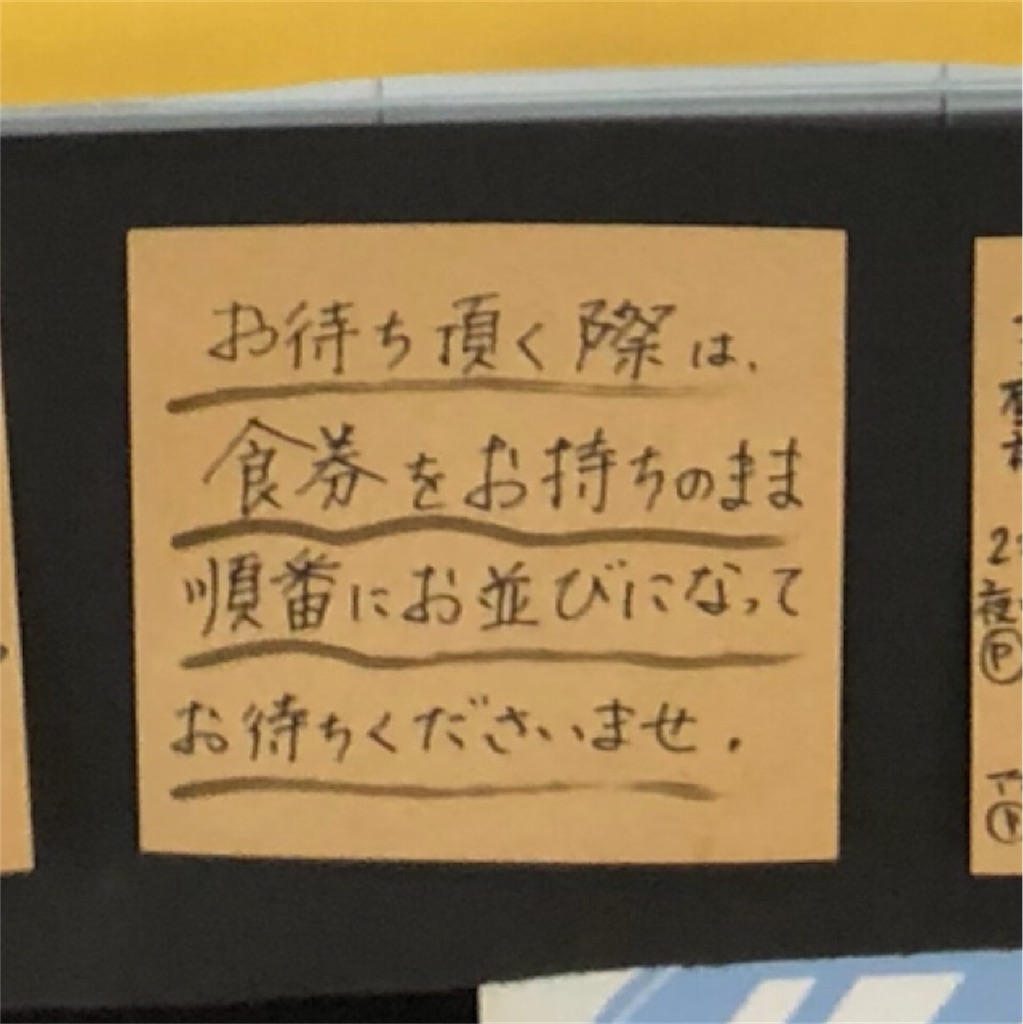 お待ち頂く際は、
食券をお持ちのまま
順番にお並びになって
お待ちくださいませ.
2
夜
P